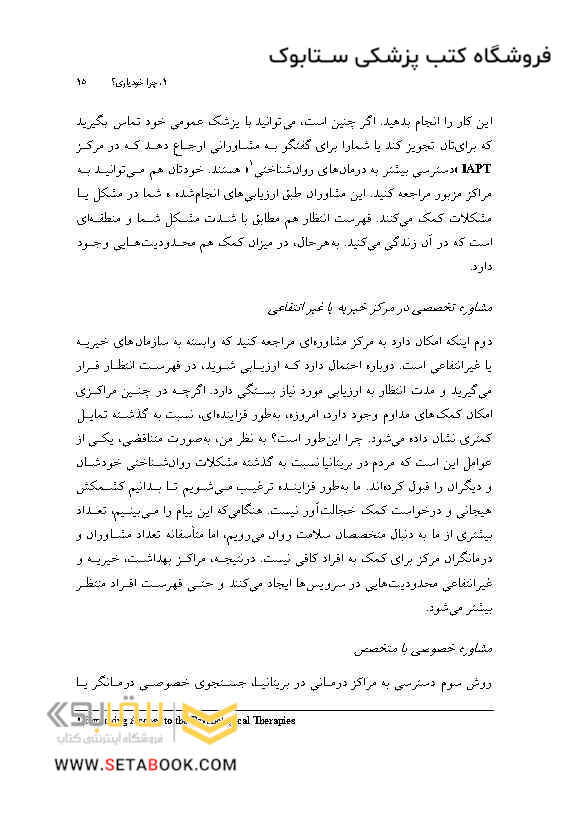 فروشگاه کتب پزشکی ســتابوک
۱. چرا خودیاری؟ ۱۵
این کار را انجام بدهید. اگر چنین است، می‌توانید با پزشک عمومی خود تماس بگیرید
که برای‌تان تجویز کند یا شمارا برای گفتگو بـه مشـاورانی ارجـاع دهـد کـه در مرکـز
IAPT «دسترسی بیشتر به درمان‌های روان‌شناختی۱» هستند. خودتان هم مـی‌توانیـد بـه
مراکز مزبور مراجعه کنید. این مشاوران طبق ارزیابی‌های انجام‌شده ه شما در مشکل یـا
مشکلات کمک می‌کنند. فهرست انتظار هم مطابق با شـدت مشـکل شـما و منطقـه‌ای
است که در آن زندگی می‌کنید. به‌هرحال، در میزان کمک هم محـدودیت‌هـایی وجـود
دارد.
مشاوره تخصصی در مرکز خیریه یا غیر انتفاعی
دوم اینکه امکان دارد به مرکز مشاوره‌ای مراجعه کنید که وابسته به سازمان‌های خیریـه
یا غیرانتفاعی است. دوباره احتمال دارد کـه ارزیـابی شـوید، در فهرسـت انتظـار قـرار
می‌گیرید و مدت انتظار به ارزیابی مورد نیاز بسـتگی دارد. اگرچـه در چنـین مراکـزی
امکان کمک‌های مداوم وجود دارد، امروزه، به‌طور فزاینده‌ای، نسبت به گذشـته تمایـل
کمتری نشان داده می‌شود. چرا این‌طور است؟ به نظر من، به‌صورت متناقضی، یکـی از
عوامل این است که مردم در بریتانیا نسبت به گذشته مشکلات روان‌شـناختی خودشـان
و دیگران را قبول کرده‌اند. ما به‌طور فزاینـده ترغیـب مـی‌شـویم تـا بـدانیم کشـمکش
هیجانی و درخواست کمک خجالت‌آور نیست. هنگامی‌که این پیام را مـی‌بینـیم، تعـداد
بیشتری از ما به دنبال متخصصان سلامت روان می‌رویم، اما متأسفانه تعداد مشـاوران و
درمانگران مرکز برای کمک به افراد کافی نیست. درنتیجـه، مراکـز بهداشـت، خیریـه و
غیرانتفاعی محدودیت‌هایی در سرویس‌ها ایجاد می‌کنند و حتـی فهرسـت افـراد منتظـر
بیشتر می‌شود.
مشاوره خصوصی یا متخصص
روش سوم دسترسی به مراکز درمـانی در بریتانیـا، جسـتجوی خصوصـی درمـانگر یـا
to the Psychological Therapies
ستابوک
فروشگاه اینترنتی کتاب
WWW.SETABOOK.COM